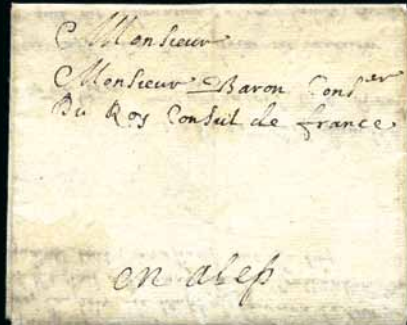 Monsieur
Monsieur Baron Cons^er
Du Roy Consul de france
en alep